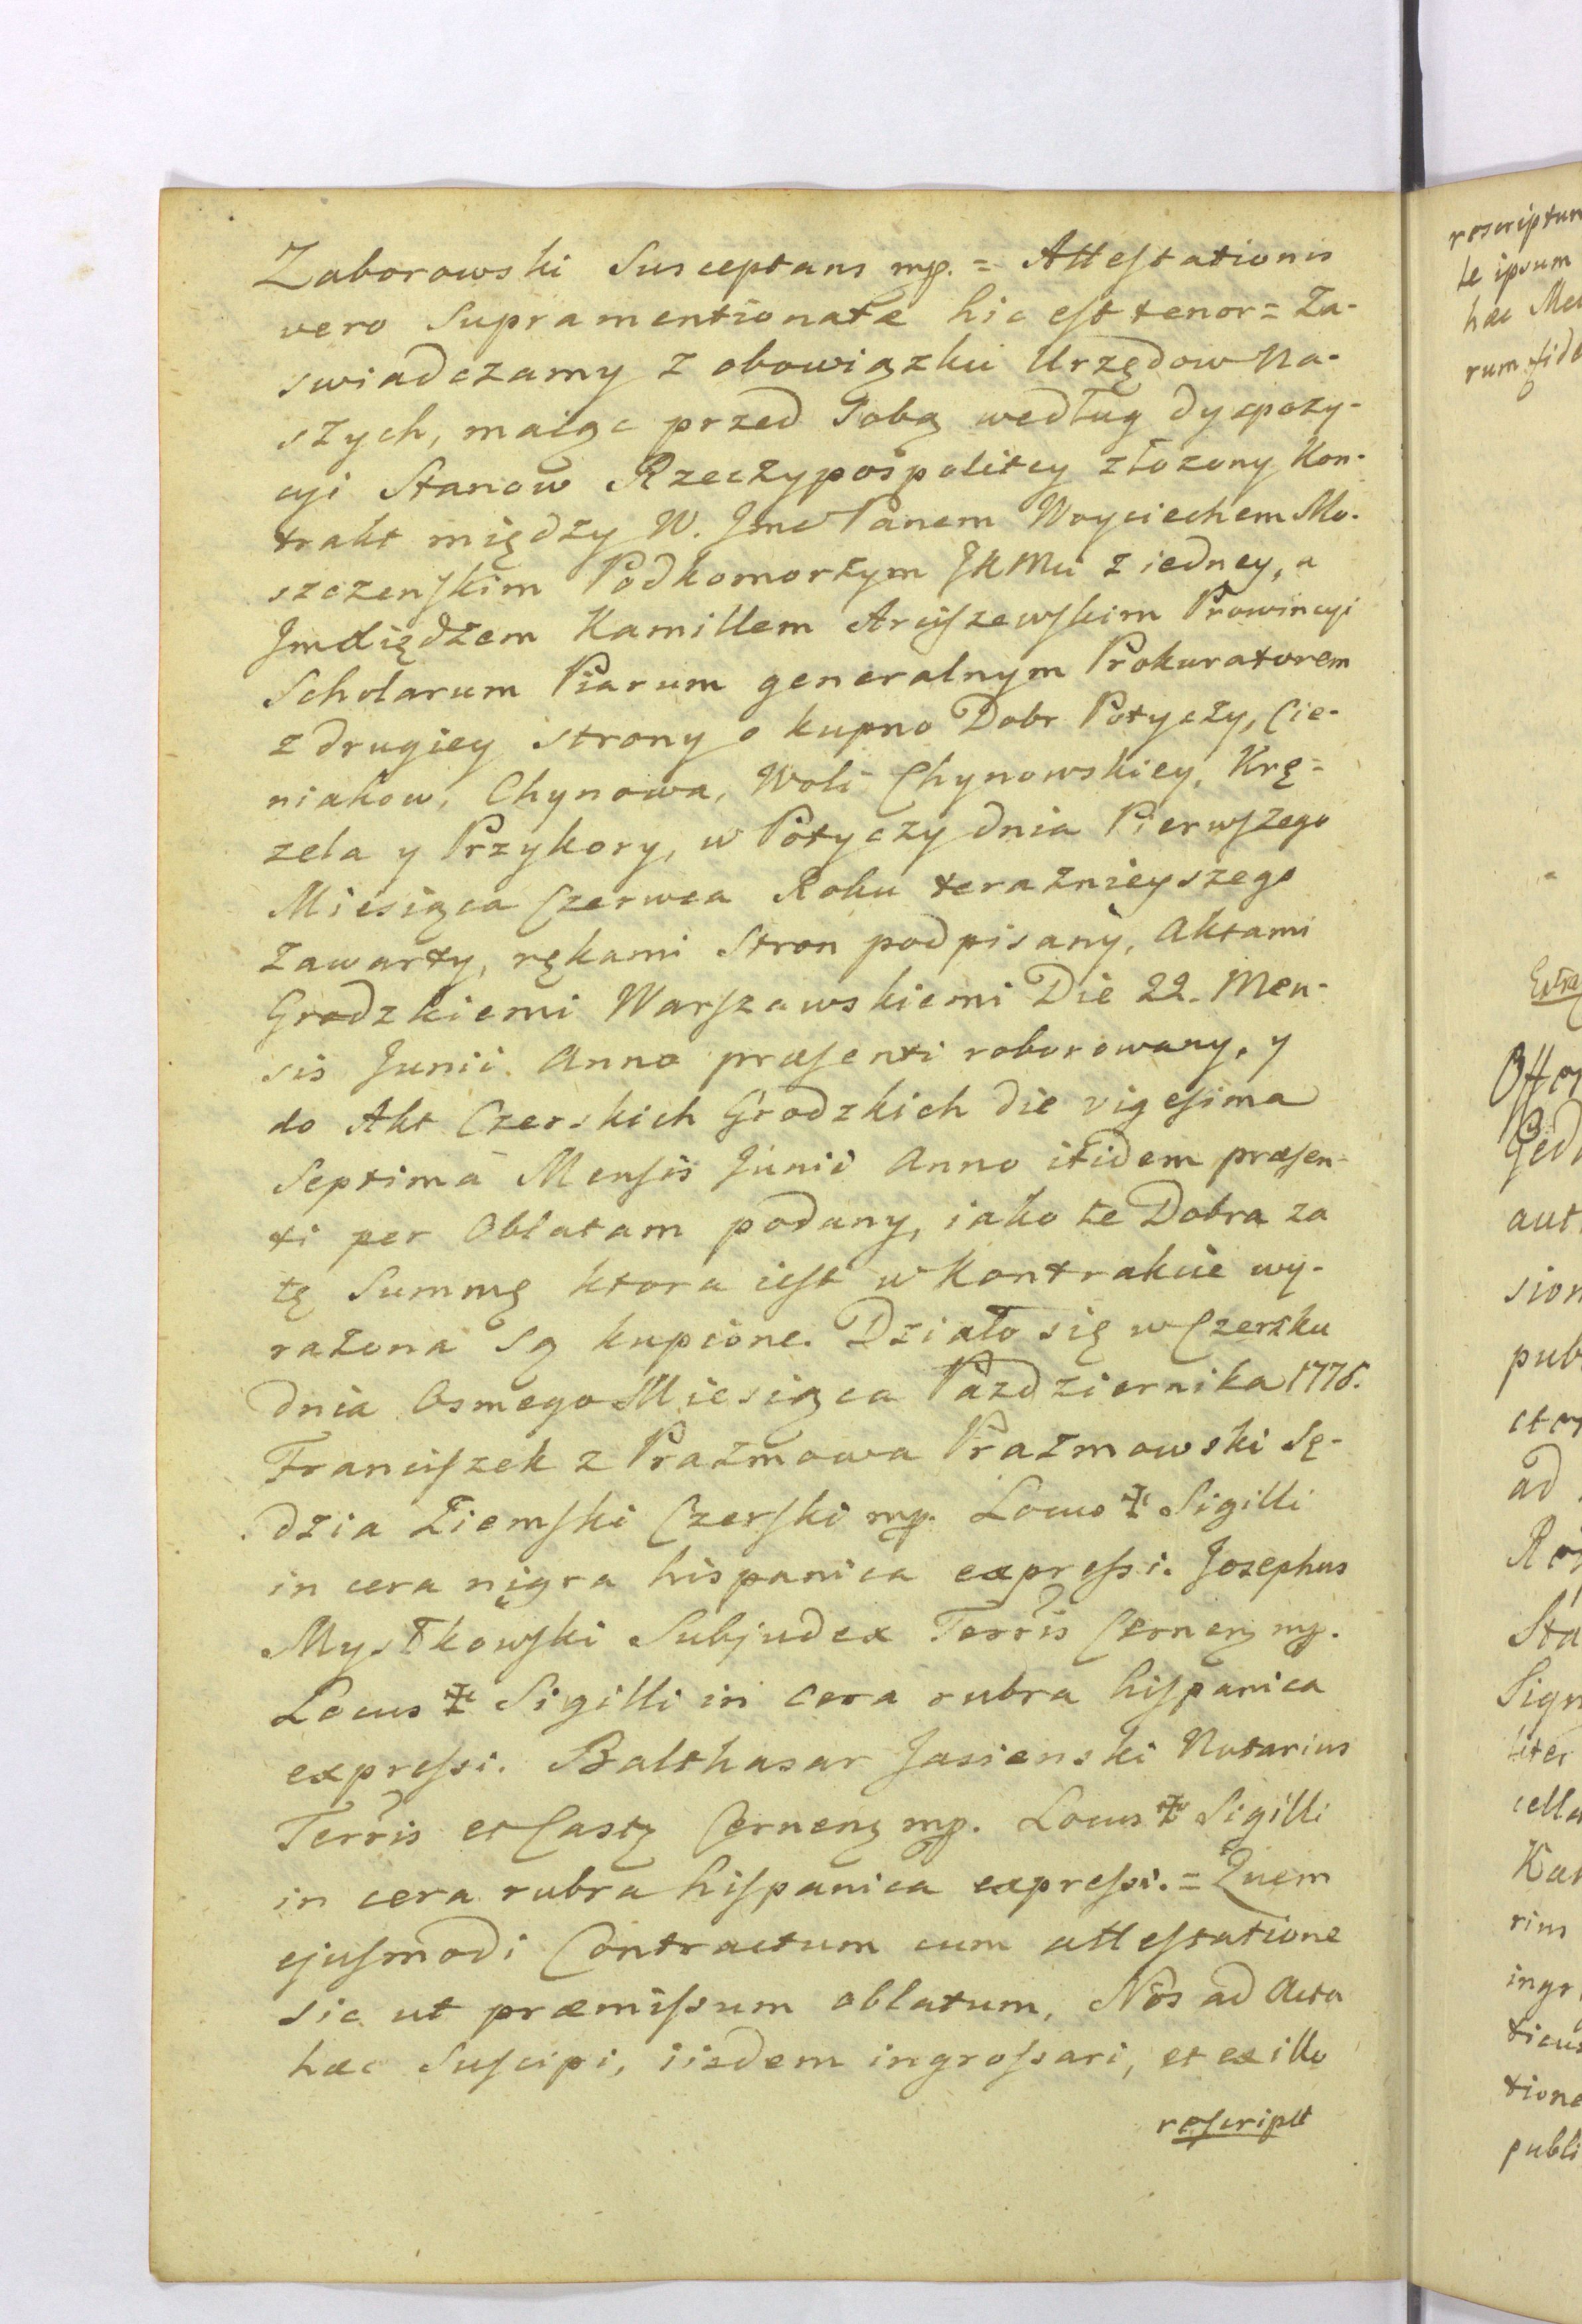 Zaborowski Susceptans mp. = Attestationis
vero supramentionatæ hic est tenor = Za-
swiadczamy z obowiązku Urzędow Na-
szych, maiąc przed Sobą według dyspozy-
cyi Stanow Rzeczypospolitey złozony Kon-
trakt między W. Jmc Panem Woyciechem Mo-
szczenskim Podkomorzym JKMci z iedney, a
Jmcxiędzem Kamillem Arciszewskim Prowincyi
Scholarum Piarum generalnym Prokuratorem
z drugiey strony o kupno Dobr Potyczy, Cie-
niakow, Chynowa, Woli Chynowskiey, Krę=
zela y Przykory, w Potyczy dnia Pierwszego
Miesiąca Czerwca Roku terazniеyszego
zawarty, rękami Stron podpisany, Aktami
Grodzkiemi Warszawskiemi Die 22. Men-
sis Junii Anno præsenti roborowany, y
do Akt Czerskich Grodzkich die vigesima
Septima Mensis Junii Anno itidem præsen-
ti per Oblatam podany, iako te Dobra za
tę Summę ktora iest w Kontrakcie wy-
rażona są kupione. Działo się w Czersku
dnia Osmego Miesiąca Pazdziernika 1776.
Franciszek z Prażmowa Prażmowski Sę-
dzia Ziemski Czerski mp. Locus ‡ Sigilli
in cera nigra hispanica expressi. Josephus
Mystkowski Subjudex Terris Cernen mp.
Locus ‡ Sigilli in cera rubra hispanica
expressi. Balthasar Jasienski Notarius
Terris et Castr Cernen mp. Locus ‡ Sigilli
in cera rubra hispanica expressi. = Quem
ejusmodi Contractum cum attestatione
sic ut præmissum oblatum, Nos ad Acta
hæc suscipi, iisdem ingrossari, et ex illo
rescript